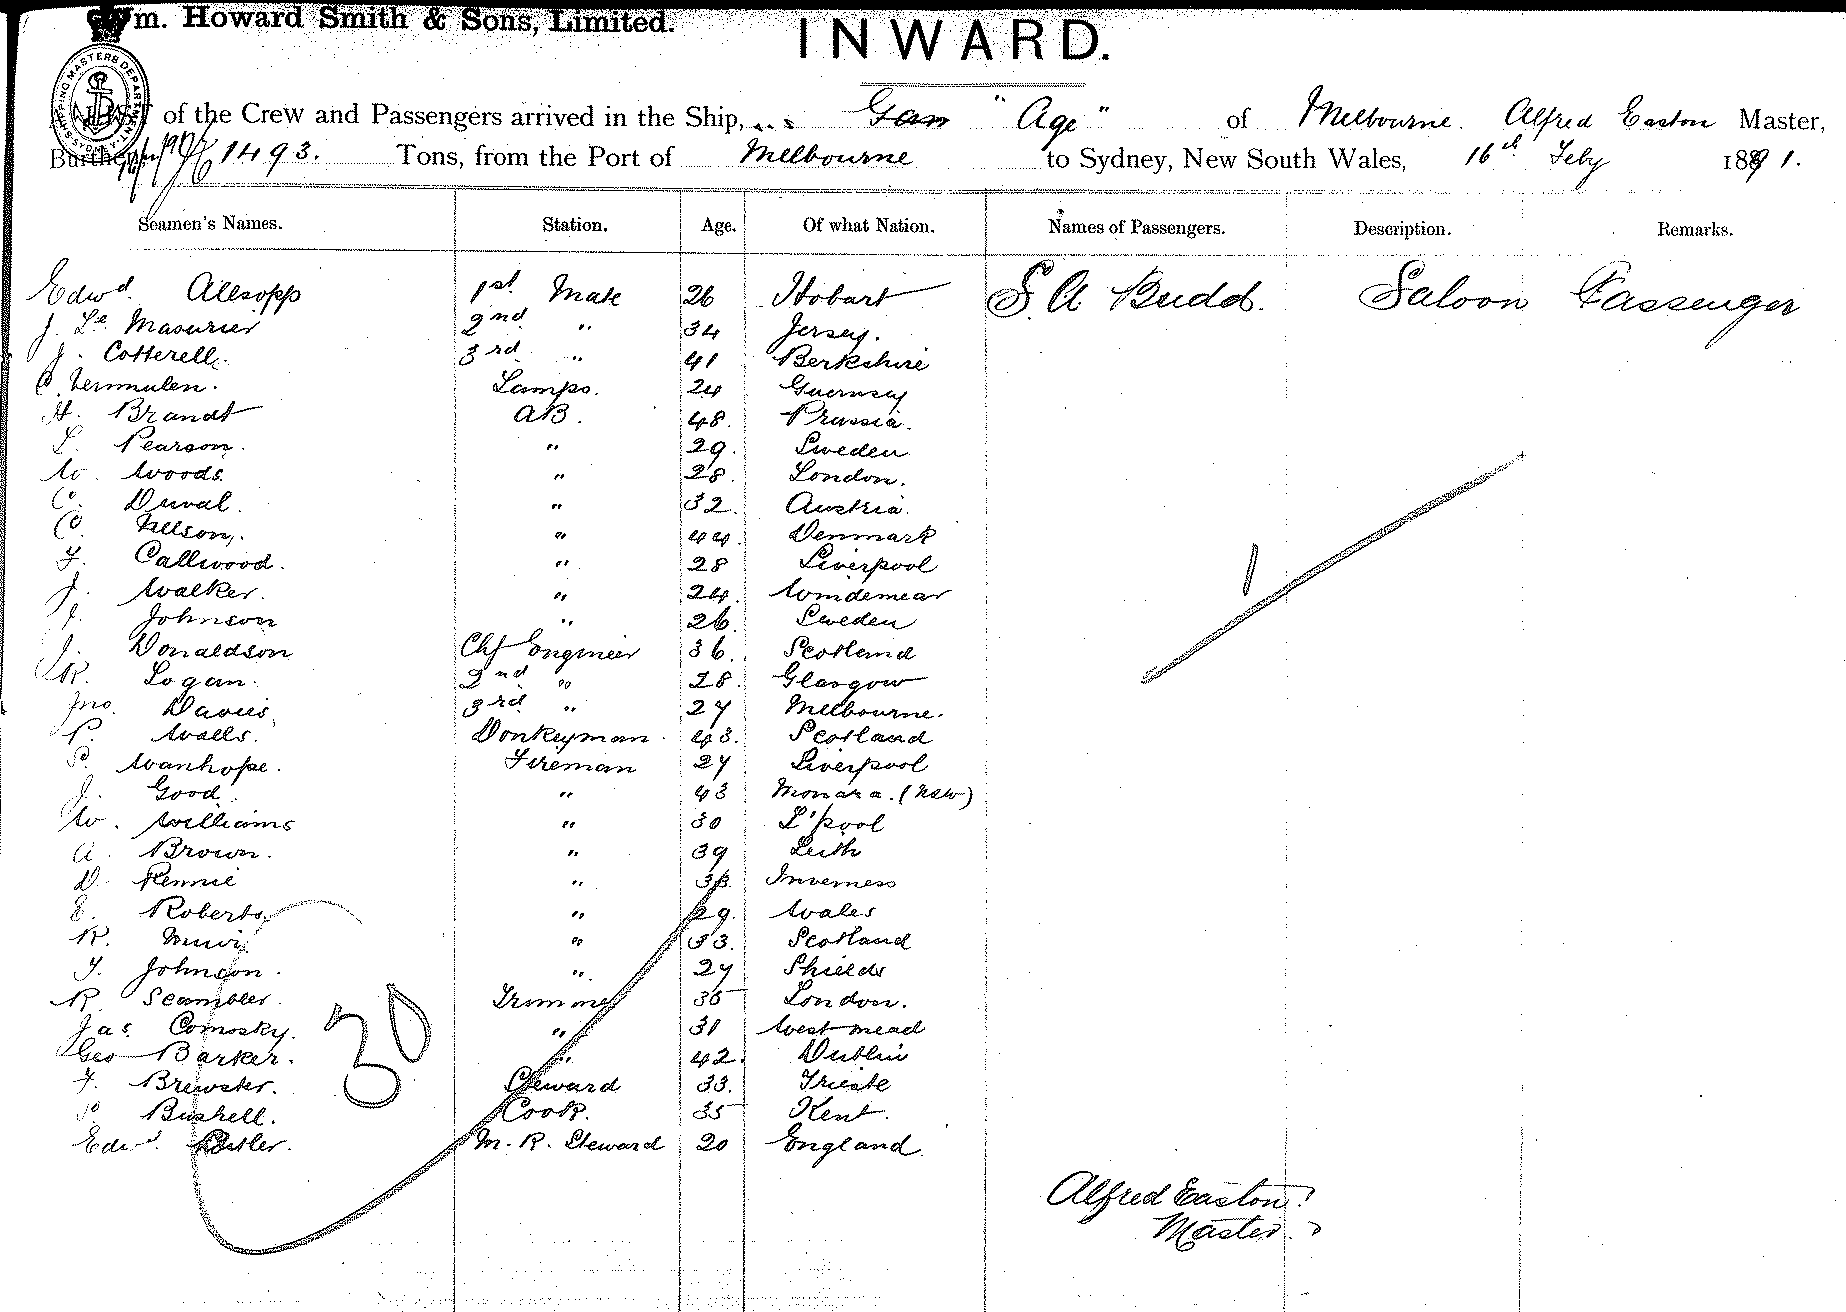 Wm. Howard Smith & Sons, Limited.
INWARD.
of the Crew and Passengers arrived in the Ship, s.s. "Age" of Melbourne. Alfred Easton Master,
Burthen 1493. Tons, from the Port of Melbourne to Sydney, New South Wales, 16th Feby 1891.
Seamen's Names. Station. Age. Of what Nation. Names of Passengers. Description. Remarks.
Edwd. Allsopp 1st. Mate 26 Hobart S. A Budd. Saloon Passenger
J. Le Masurier 2nd " 34 Jersey.
J. Cotterell. 3rd " 41 Berkshire
C. Vermulen. Lamps. 24 Guernsey
H. Brandt AB. 48. Prussia.
L. Pearson. " 29. Sweden
W. Woods. " 28. London.
C. Duval. " 32. Austria.
C. Nelson. " 44. Denmark
F. Callwood. " 28 Liverpool
J. Walker. " 24. Windemear
J. Johnson " 26. Sweden
J. Donaldson Chf Engineer 36. Scotland
R. Logan. 2nd " 28. Glasgow
Jno. Davies. 3rd " 27 Melbourne.
P. Walls. Donkeyman. 43. Scotland
P. Wanhope. Fireman 27 Liverpool
J. Good. " 43 Monara. (NSW)
W. Williams " 30 L'pool
A. Brown. " 39 Leith
D. Rennie " 38. Inverness
E. Roberts. " 29. Wales
R. Muir " 33. Scotland
J. Johnson. " 27 Shields
R. Scambler. Trimmer 35 London.
Jas. Comosky. " 31 West mead
Geo Barker. " 42. Dublin
F. Brewster. Steward 33. Trieste
P. Bushell. Cook. 35 Kent.
Edwd. Butler. M. R. Steward 20 England.
30
1
Alfred Easton
Master